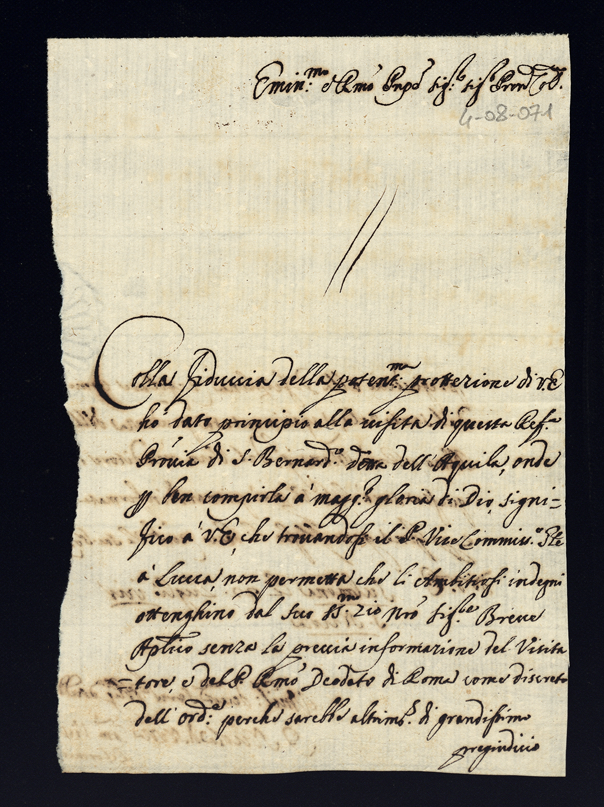 Emin.mo e Rmo Sig.re Sig.re Pron Col.
4-08-071
Colla fiduccia della potent.ma prottezione di V.E
ho dato principio alla visita di questa Rif.ta
Prôvia di S. Bernard.o detta dell'Aquila, onde
ben compirla à magg.r gloria di Dio, signi=
fico à V.E, che trovandosi il P. Vice Commis.o Gle
à Lucca, non permetta che li Ambitiosi indegni
ottenghino dal suo SS.mo zio Nrô Sig.re Breve
Aplico senza la previa informazione del Visita
=tore, e del P. Rmô Deodato di Roma come discreto
dell'ord.e perche sarebbe altrim.te di grandissimo
pregiudicio